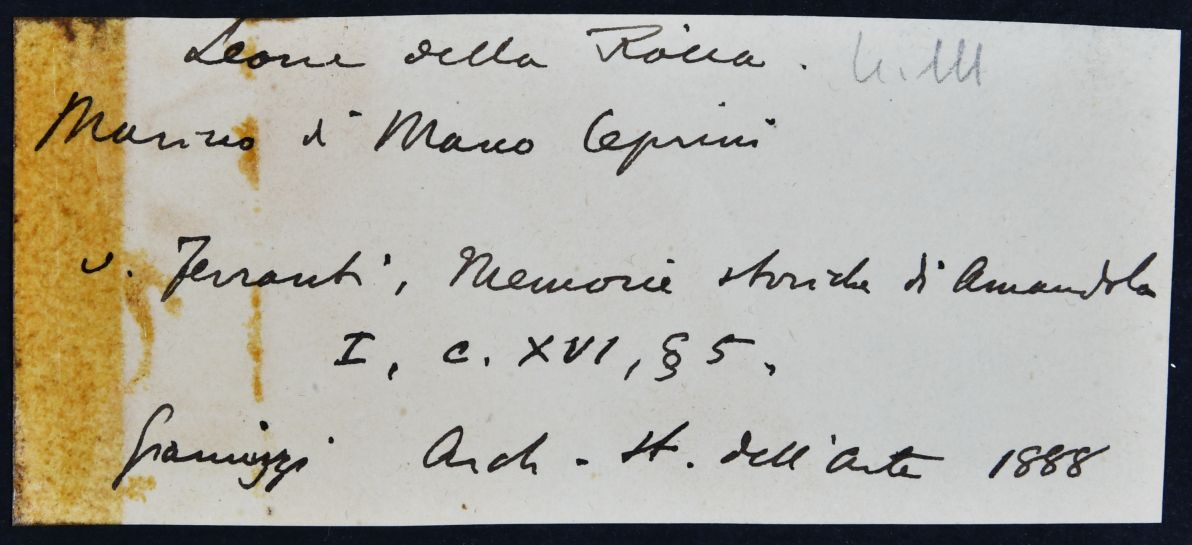 Leone della Rocca.
Marino di Marco Ceprini
v. Ferranti, Memorie storiche di Amandola
I, c. XVI, § 5.
Gianuizzi Arch. st. dell'arte 1888